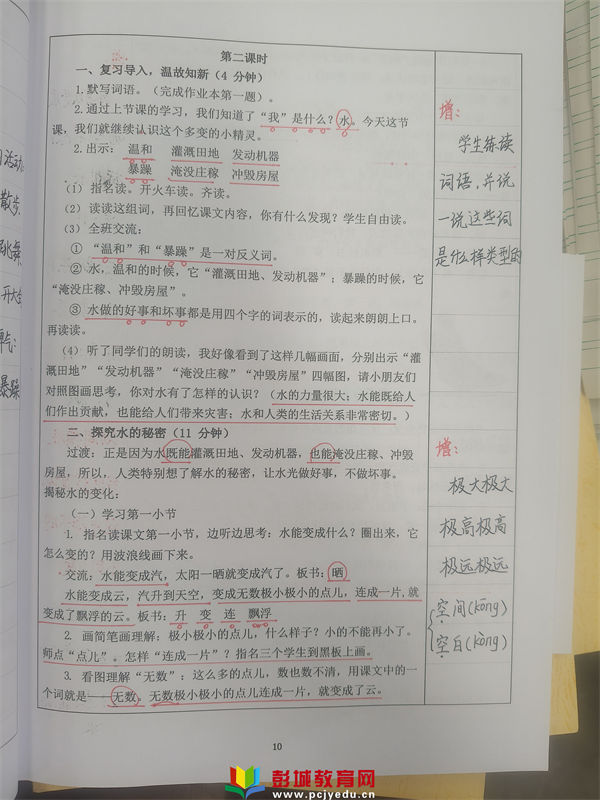 第二课时
一、复习导入，温故知新（4 分钟）
1.默写词语。（完成作业本第一题）。
2.通过上节课的学习，我们知道了“我”是什么？水。今天这节
课，我们就继续认识这个多变的小精灵。
2.出示： 温和 灌溉田地 发动机器
暴躁 淹没庄稼 冲毁房屋
（1） 指名读。开火车读。齐读。
（2） 读读这组词，再回忆课文内容，你有什么发现？学生自由读。
（3） 全班交流：
① “温和”和“暴躁”是一对反义词。
② 水，温和的时候，它“灌溉田地、发动机器”；暴躁的时候，它
“淹没庄稼、冲毁房屋”。
③ 水做的好事和坏事都是用四个字的词表示的，读起来朗朗上口。
再读读。
（4） 听了同学们的朗读，我好像看到了这样几幅画面，分别出示“灌
溉田地”“发动机器”“淹没庄稼”“冲毁房屋”四幅图，请小朋友们
对照图画思考，你对水有了怎样的认识？（水的力量很大；水能既给人
们作出贡献，也能给人们带来灾害；水和人类的生活关系非常密切。）
二、探究水的秘密（11 分钟）
过渡：正是因为水既能灌溉田地、发动机器，也能淹没庄稼、冲毁
房屋，所以，人类特别想了解水的秘密，让水光做好事，不做坏事。
揭秘水的变化：
（一）学习第一小节
1. 指名读课文第一小节，边听边思考：水能变成什么？圈出来，它
怎么变的？用波浪线画下来。
交流：水能变成汽，太阳一晒就变成汽了。板书：晒
水能变成云，汽升到天空，变成无数极小极小的点儿，连成一片，就
变成了飘浮的云。板书：升 变 连 飘浮
2. 画简笔画理解：极小极小的点儿，什么样子？小的不能再小了。
师点“点儿”。怎样“连成一片”？指名三个学生到黑板上画。
3. 看图理解“无数”：这么多的点儿，数也数不清，用课文中的一
个词就是——无数。无数极小极小的点儿连成一片，就变成了云。
10
增：
学生练读
词语，并说
一说这些词
是什么样类型的
增：
极大极大
极高极高
极远极远
空间(kōng)
空白(kòng)
散步
跳舞
暴躁
彭城教育网
www.pcjyedu.cn